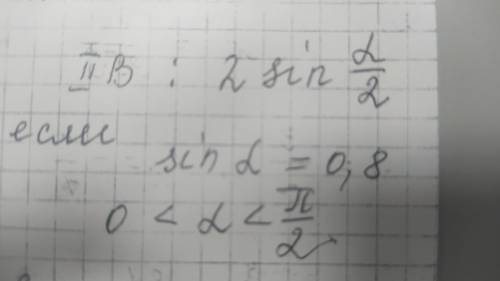 II В : 2 sin α/2
если
sin α = 0,8
0 < α < π/2